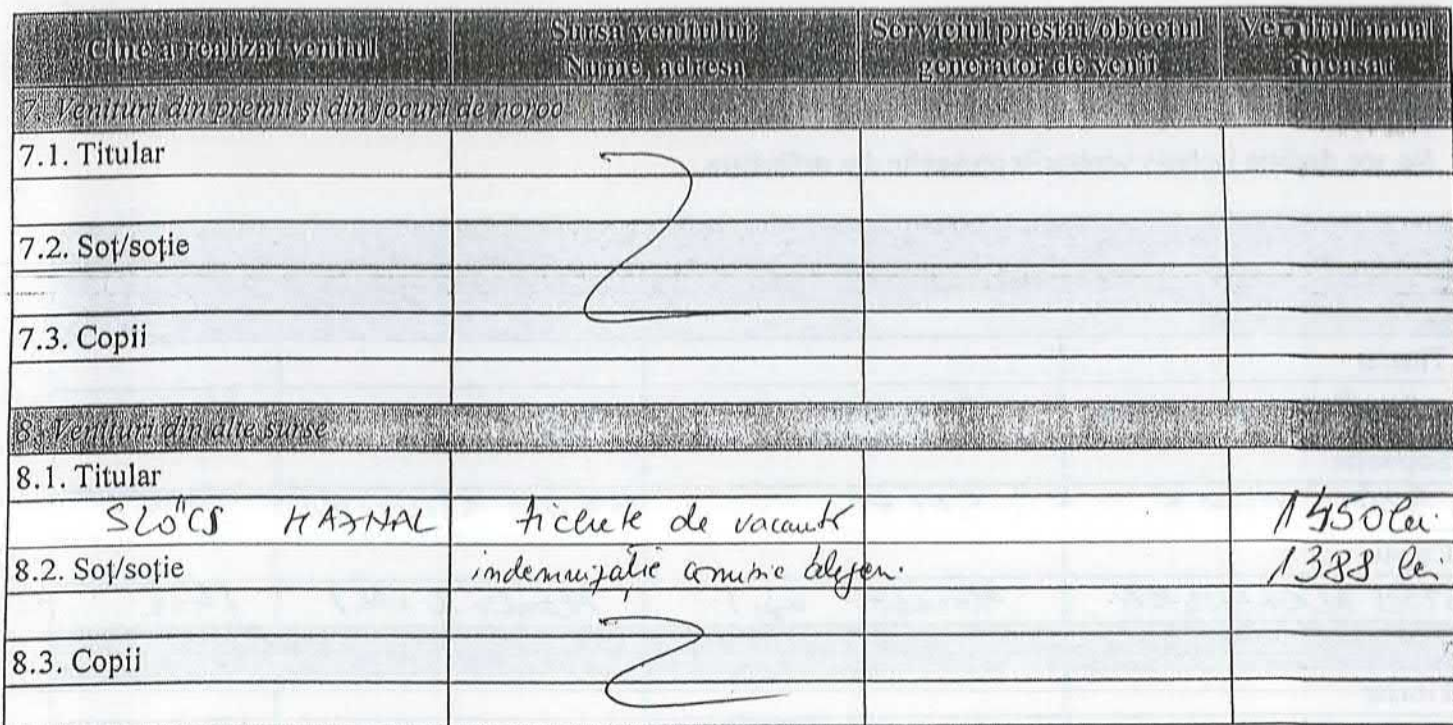 Cine a realizat venitul Sursa venitului: Nume, adresa Serviciul prestat/obiectul generator de venit Venitul anual încasat
7. Venituri din premii și din jocuri de noroc
7.1. Titular
7.2. Soț/soție
7.3. Copii
8. Venituri din alte surse
8.1. Titular
HAJNAL tichete de vacanta 1450 lei
8.2. Soț/soție indemnizație comisie 1388 lei
8.3. Copii